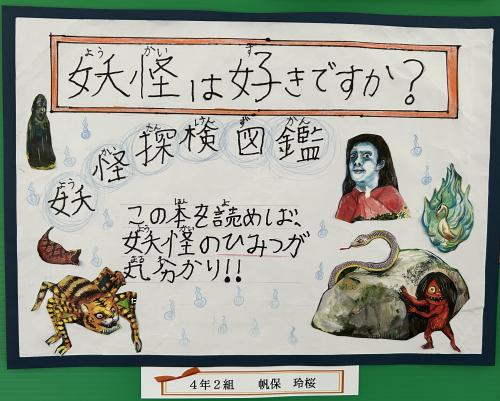 妖怪は好きですか?
よう かい す
妖怪探検図鑑
よう かい たん けん ず かん
この本を読めば、
ほん よ
妖怪のひみつが
よう かい
丸分かり!!
まる わ
4年2組 帆保 玲桜